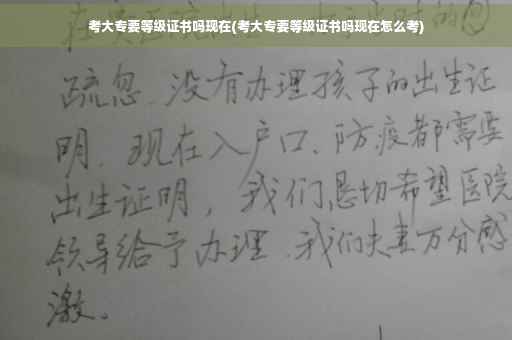 考大专要等级证书吗现在(考大专要等级证书吗现在怎么考)
疏忽、没有办理孩子的出生证
明、现在入户口、防疫都需要
出生证明，我们恳切希望医院
领导给予办理、我们夫妻万分感
激。